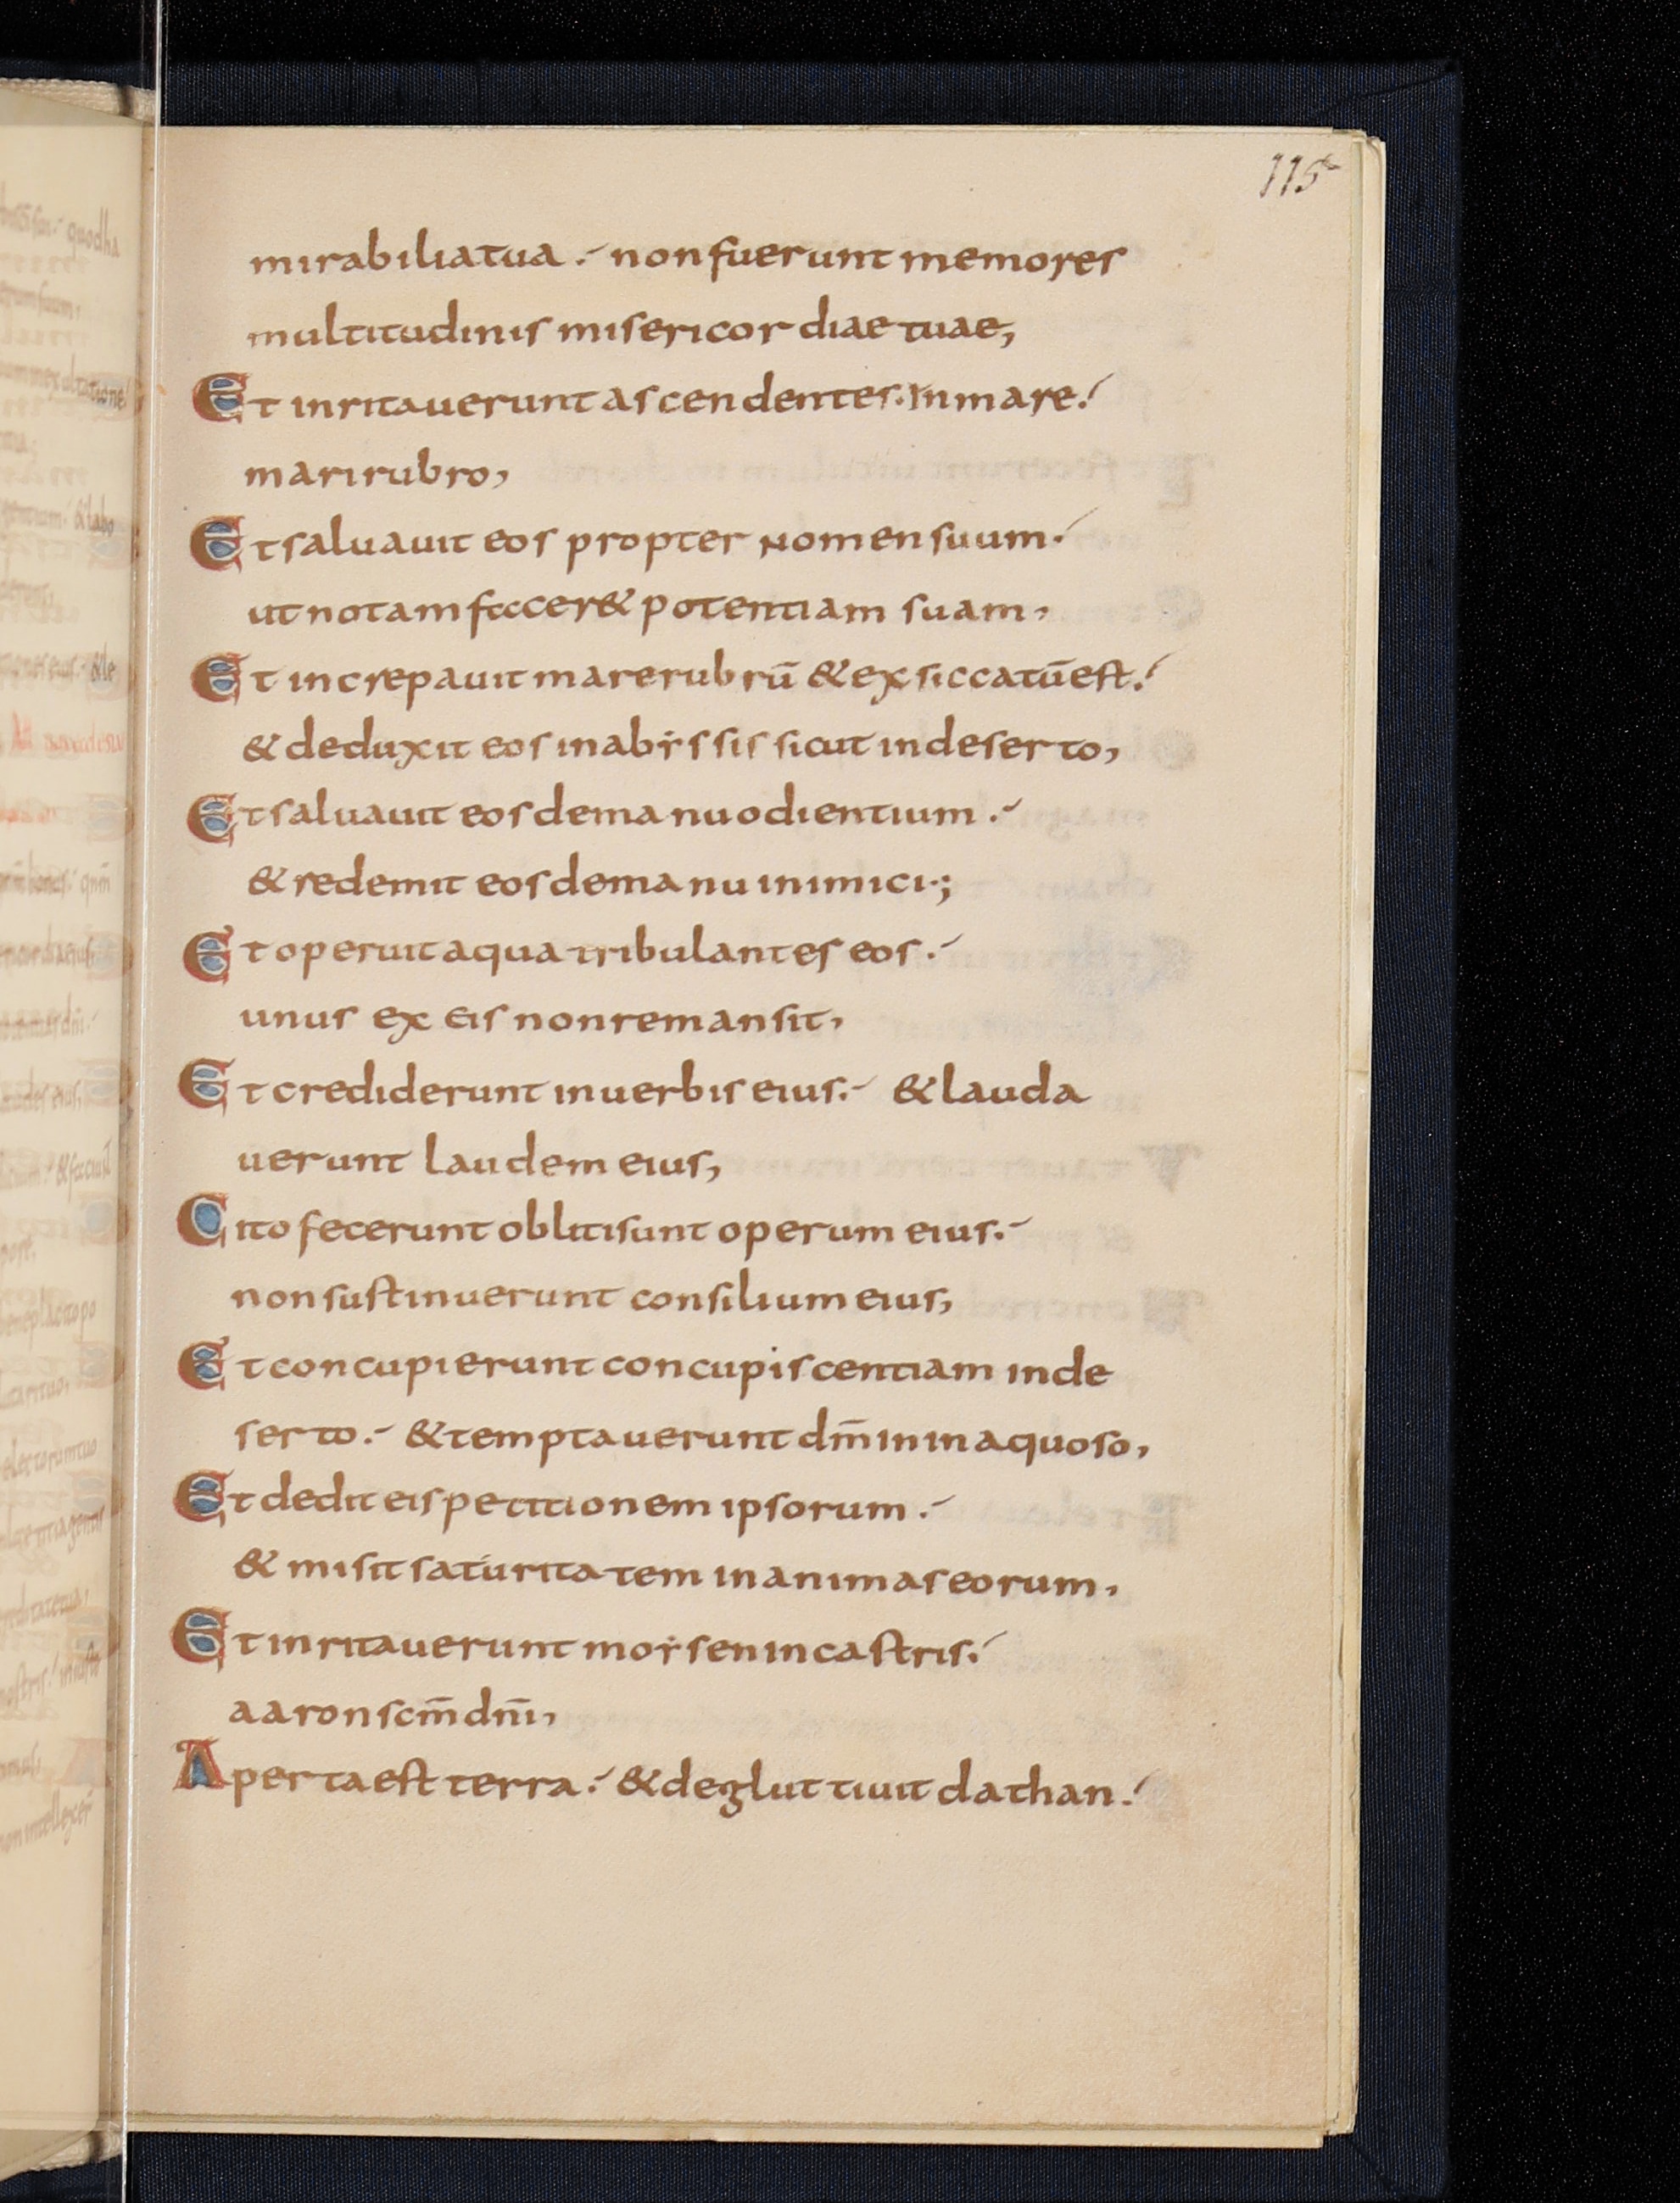 115
mirabilia tua .´ non fuerunt memores
multitudinis misericordiae tuae,
Et inritauerunt ascendentes. in mare.´
mari rubro,
Et saluauit eos propter nomen suum.´
ut notam faceret potentiam suam,
Et increpauit mare rubrū & exsiccatū est.´
& deduxit eos in abẏssis sicut in deserto,
Et saluauit eos de manu odientium .´
& redemit eos de manu inimici.;
Et operuit aqua tribulantes eos .´
unus ex eis non remansit,
Et crediderunt in uerbis eius.´ & lauda
uerunt laudem eius,
Cito fecerunt obliti sunt operum eius.´
non sustinuerunt consilium eius,
Et concupierunt concupiscentiam in de
serto.´ & temptauerunt dm̄ in inaquoso,
Et dedit eis petitionem ipsorum .´
& misit saturitatem in animas eorum,
Et inritauerunt moẏsen in castris.´
aaron scm̄ dn̄i,
Aperta est terra.´ & degluttiuit dathan.´